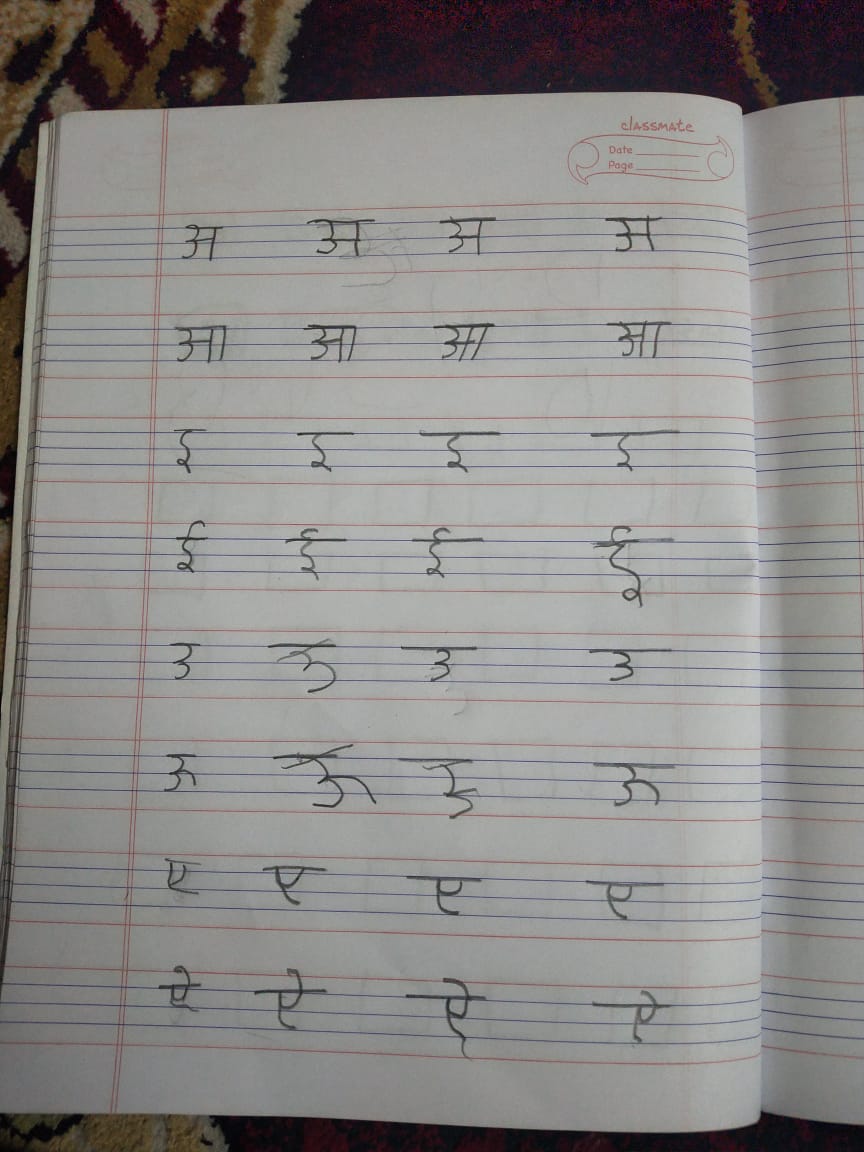 classmate
Date
Page
अ अ अ अ
आ आ आ आ
इ इ इ इ
ई ई ई ई
उ उ उ उ
ऊ ऊ ऊ ऊ
ए ए ए ए
ऐ ऐ ऐ ऐ